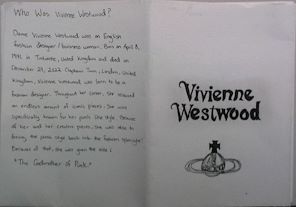 Who Was Vivienne Westwood?
Dame Vivienne Westwood was an English
fashion designer / business woman. Born on April 8,
1941 in Tintwistle, United Kingdom and died on
December 29, 2022 Clapham Town, London, United
Kingdom, Vivienne Westwood was born to be a
fashion designer. Througout her career, she released
an endless amount of iconic pieces. She was
specifically known for her punk like style. Because
of her and her creative pieces, she was able to
bring the punk style back into the fashion spotlight!
Because of that, she was given the title:
"The Godmother of Punk."
Vivienne
Westwood